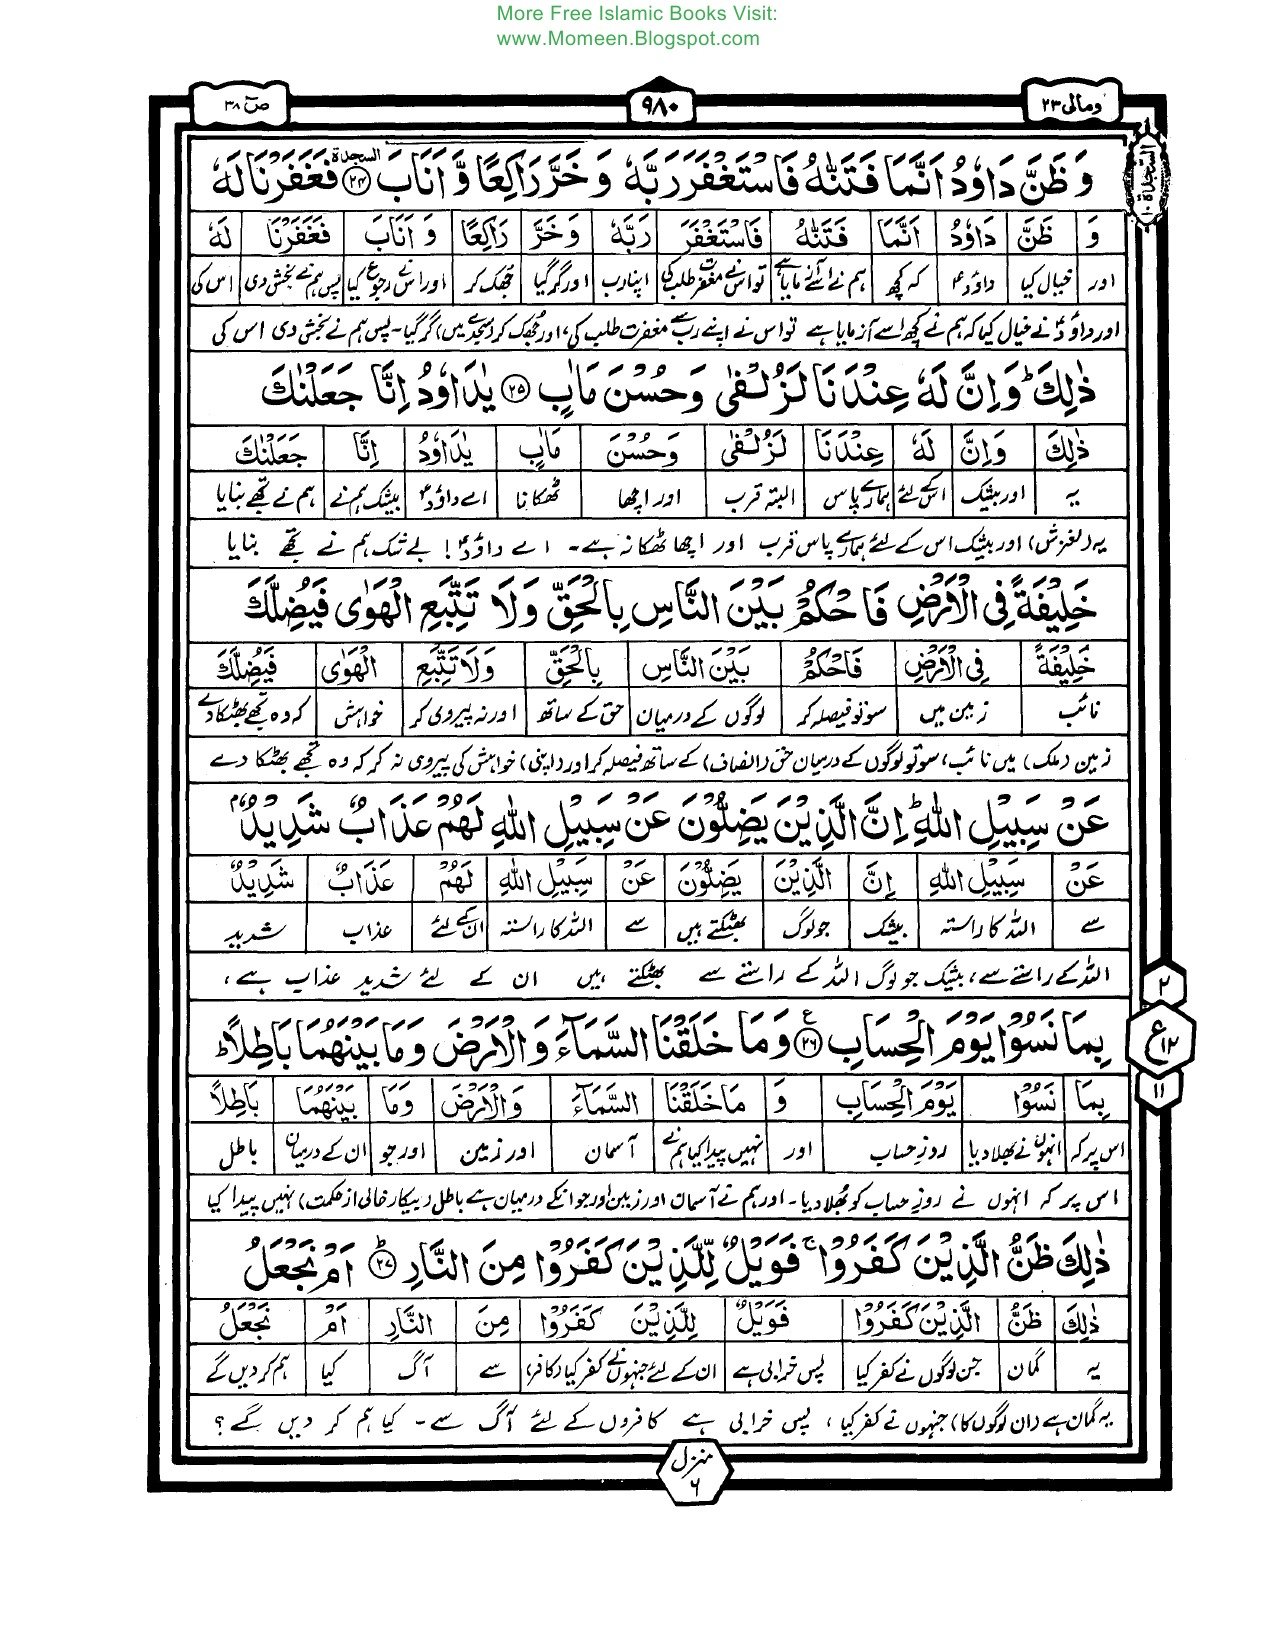 More Free Islamic Books Visit:
www.Momeen.Blogspot.com
ومالی ۲۳
۹۸۰
صٓ ۳۸
السجدة ۱۰
وَظَنَّ دَاوٗدُ اَنَّمَا فَتَنّٰهُ فَاسْتَغْفَرَ رَبَّهٗ وَخَرَّ رَاكِعًا وَّاَنَابَ ۩ السجدة ۲۴ فَغَفَرْنَا لَهٗ
وَ ظَنَّ دَاوٗدُ اَنَّمَا فَتَنّٰهُ فَاسْتَغْفَرَ رَبَّهٗ وَخَرَّ رَاكِعًا وَّاَنَابَ فَغَفَرْنَا لَهٗ
اور خیال کیا داؤدؑ کہ کچھ ہم نے اسے آزمایا ہے تو اس نے مغفرت طلب کی اپنا رب اور گر گیا جھک کر اور اس نے رجوع کیا پس ہم نے بخش دی اس کی
اور داؤدؑ نے خیال کیا کہ ہم نے کچھ اسے آزمایا ہے تو اس نے اپنے رب سے مغفرت طلب کی، اور جھک کر (سجدے میں) گر گیا۔ پس ہم نے بخش دی اس کی
ذٰلِكَ ؕ وَاِنَّ لَهٗ عِنْدَنَا لَزُلْفٰی وَحُسْنَ مَاٰبٍ ۲۵ یٰدَاوٗدُ اِنَّا جَعَلْنٰكَ
ذٰلِكَ وَاِنَّ لَهٗ عِنْدَنَا لَزُلْفٰی وَحُسْنَ مَاٰبٍ یٰدَاوٗدُ اِنَّا جَعَلْنٰكَ
یہ اور بیشک اس کے لئے ہمارے پاس البتہ قرب اور اچھا ٹھکانا اے داؤدؑ بیشک ہم نے ہم نے تجھے بنایا
یہ (لغزش) اور بیشک اس کے لئے ہمارے پاس قرب اور اچھا ٹھکانہ ہے۔ اے داؤدؑ! بے شک ہم نے تجھے بنایا
خَلِیْفَةً فِی الْاَرْضِ فَاحْكُمْ بَیْنَ النَّاسِ بِالْحَقِّ وَلَا تَتَّبِعِ الْهَوٰی فَیُضِلَّكَ
خَلِیْفَةً فِی الْاَرْضِ فَاحْكُمْ بَیْنَ النَّاسِ بِالْحَقِّ وَلَا تَتَّبِعِ الْهَوٰی فَیُضِلَّكَ
نائب زمین میں سو تو فیصلہ کر لوگوں کے درمیان حق کے ساتھ اور نہ پیروی کر خواہش کہ وہ تجھے بھٹکا دے
زمین (ملک) میں نائب، سو تو لوگوں کے درمیان حق (انصاف) کے ساتھ فیصلہ کر اور (اپنی) خواہش کی پیروی نہ کر کہ وہ تجھے بھٹکا دے
عَنْ سَبِیْلِ اللّٰهِ ؕ اِنَّ الَّذِیْنَ یَضِلُّوْنَ عَنْ سَبِیْلِ اللّٰهِ لَهُمْ عَذَابٌ شَدِیْدٌۢ
عَنْ سَبِیْلِ اللّٰهِ اِنَّ الَّذِیْنَ یَضِلُّوْنَ عَنْ سَبِیْلِ اللّٰهِ لَهُمْ عَذَابٌ شَدِیْدٌ
سے اللہ کا راستہ بیشک جو لوگ بھٹکتے ہیں سے اللہ کا راستہ ان کے لئے عذاب شدید
اللہ کے راستے سے، بیشک جو لوگ اللہ کے راستے سے بھٹکتے ہیں ان کے لئے شدید عذاب ہے،
بِمَا نَسُوْا یَوْمَ الْحِسَابِ ۲۶ ع وَمَا خَلَقْنَا السَّمَآءَ وَالْاَرْضَ وَمَا بَیْنَهُمَا بَاطِلًا ؕ
۲
ع ۱۲
۱۱
بِمَا نَسُوْا یَوْمَ الْحِسَابِ وَ مَا خَلَقْنَا السَّمَآءَ وَالْاَرْضَ وَمَا بَیْنَهُمَا بَاطِلًا
اس پر کہ انہوں نے بھلا دیا روزِ حساب اور نہیں پیدا کیا ہم نے آسمان اور زمین اور جو ان کے درمیان باطل
اس پر کہ انہوں نے روزِ حساب کو بھلا دیا۔ اور ہم نے آسمان اور زمین اور جو انکے درمیان ہے باطل (بیکار خالی از حکمت) نہیں پیدا کیا
ذٰلِكَ ظَنُّ الَّذِیْنَ كَفَرُوْا ۚ فَوَیْلٌ لِّلَّذِیْنَ كَفَرُوْا مِنَ النَّارِ ؕ ۲۷ اَمْ نَجْعَلُ
ذٰلِكَ ظَنُّ الَّذِیْنَ كَفَرُوْا فَوَیْلٌ لِّلَّذِیْنَ كَفَرُوْا مِنَ النَّارِ اَمْ نَجْعَلُ
یہ گمان جن لوگوں نے کفر کیا پس خرابی ہے ان کے لئے جنہوں نے کفر کیا (کافر) سے آگ کیا ہم کر دیں گے
یہ گمان ہے (ان لوگوں کا) جنہوں نے کفر کیا، پس خرابی ہے کافروں کے لئے آگ سے۔ کیا ہم کر دیں گے؟
منزل ۶